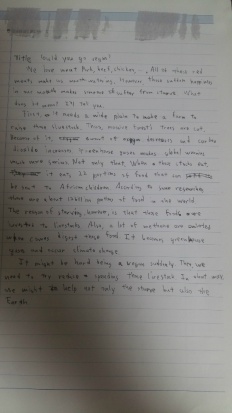 Title: Would you go vegan?
We love meat. Pork, beef, chicken, ... All of these
meats make us mouth-watering. However these
makes of suffer from starve. What
does he mean? I'll tell you.
First, it needs a wide place to make a farm to
raise these livestock. Thus, forests' trees are cut.
Because of it, amount of decreases and carbon
dioxide increases. Greenhouse gases makes global warming
much more serious. Not only that. When a cow eats
it eats, 22 portions of food that can
be sent to African children. According to some researches,
there are about billion of in the world.
The reason of starving, however, is that these foods are
to livestock. Also, a lot of methane are emitted
when cows digest these food. It becomes greenhouse
gases and occur climate change.
It might be hard being a vegan suddenly. Then, we
need to try reduce spending these livestock. In that way,
we might help not only the starve but also the
Earth.